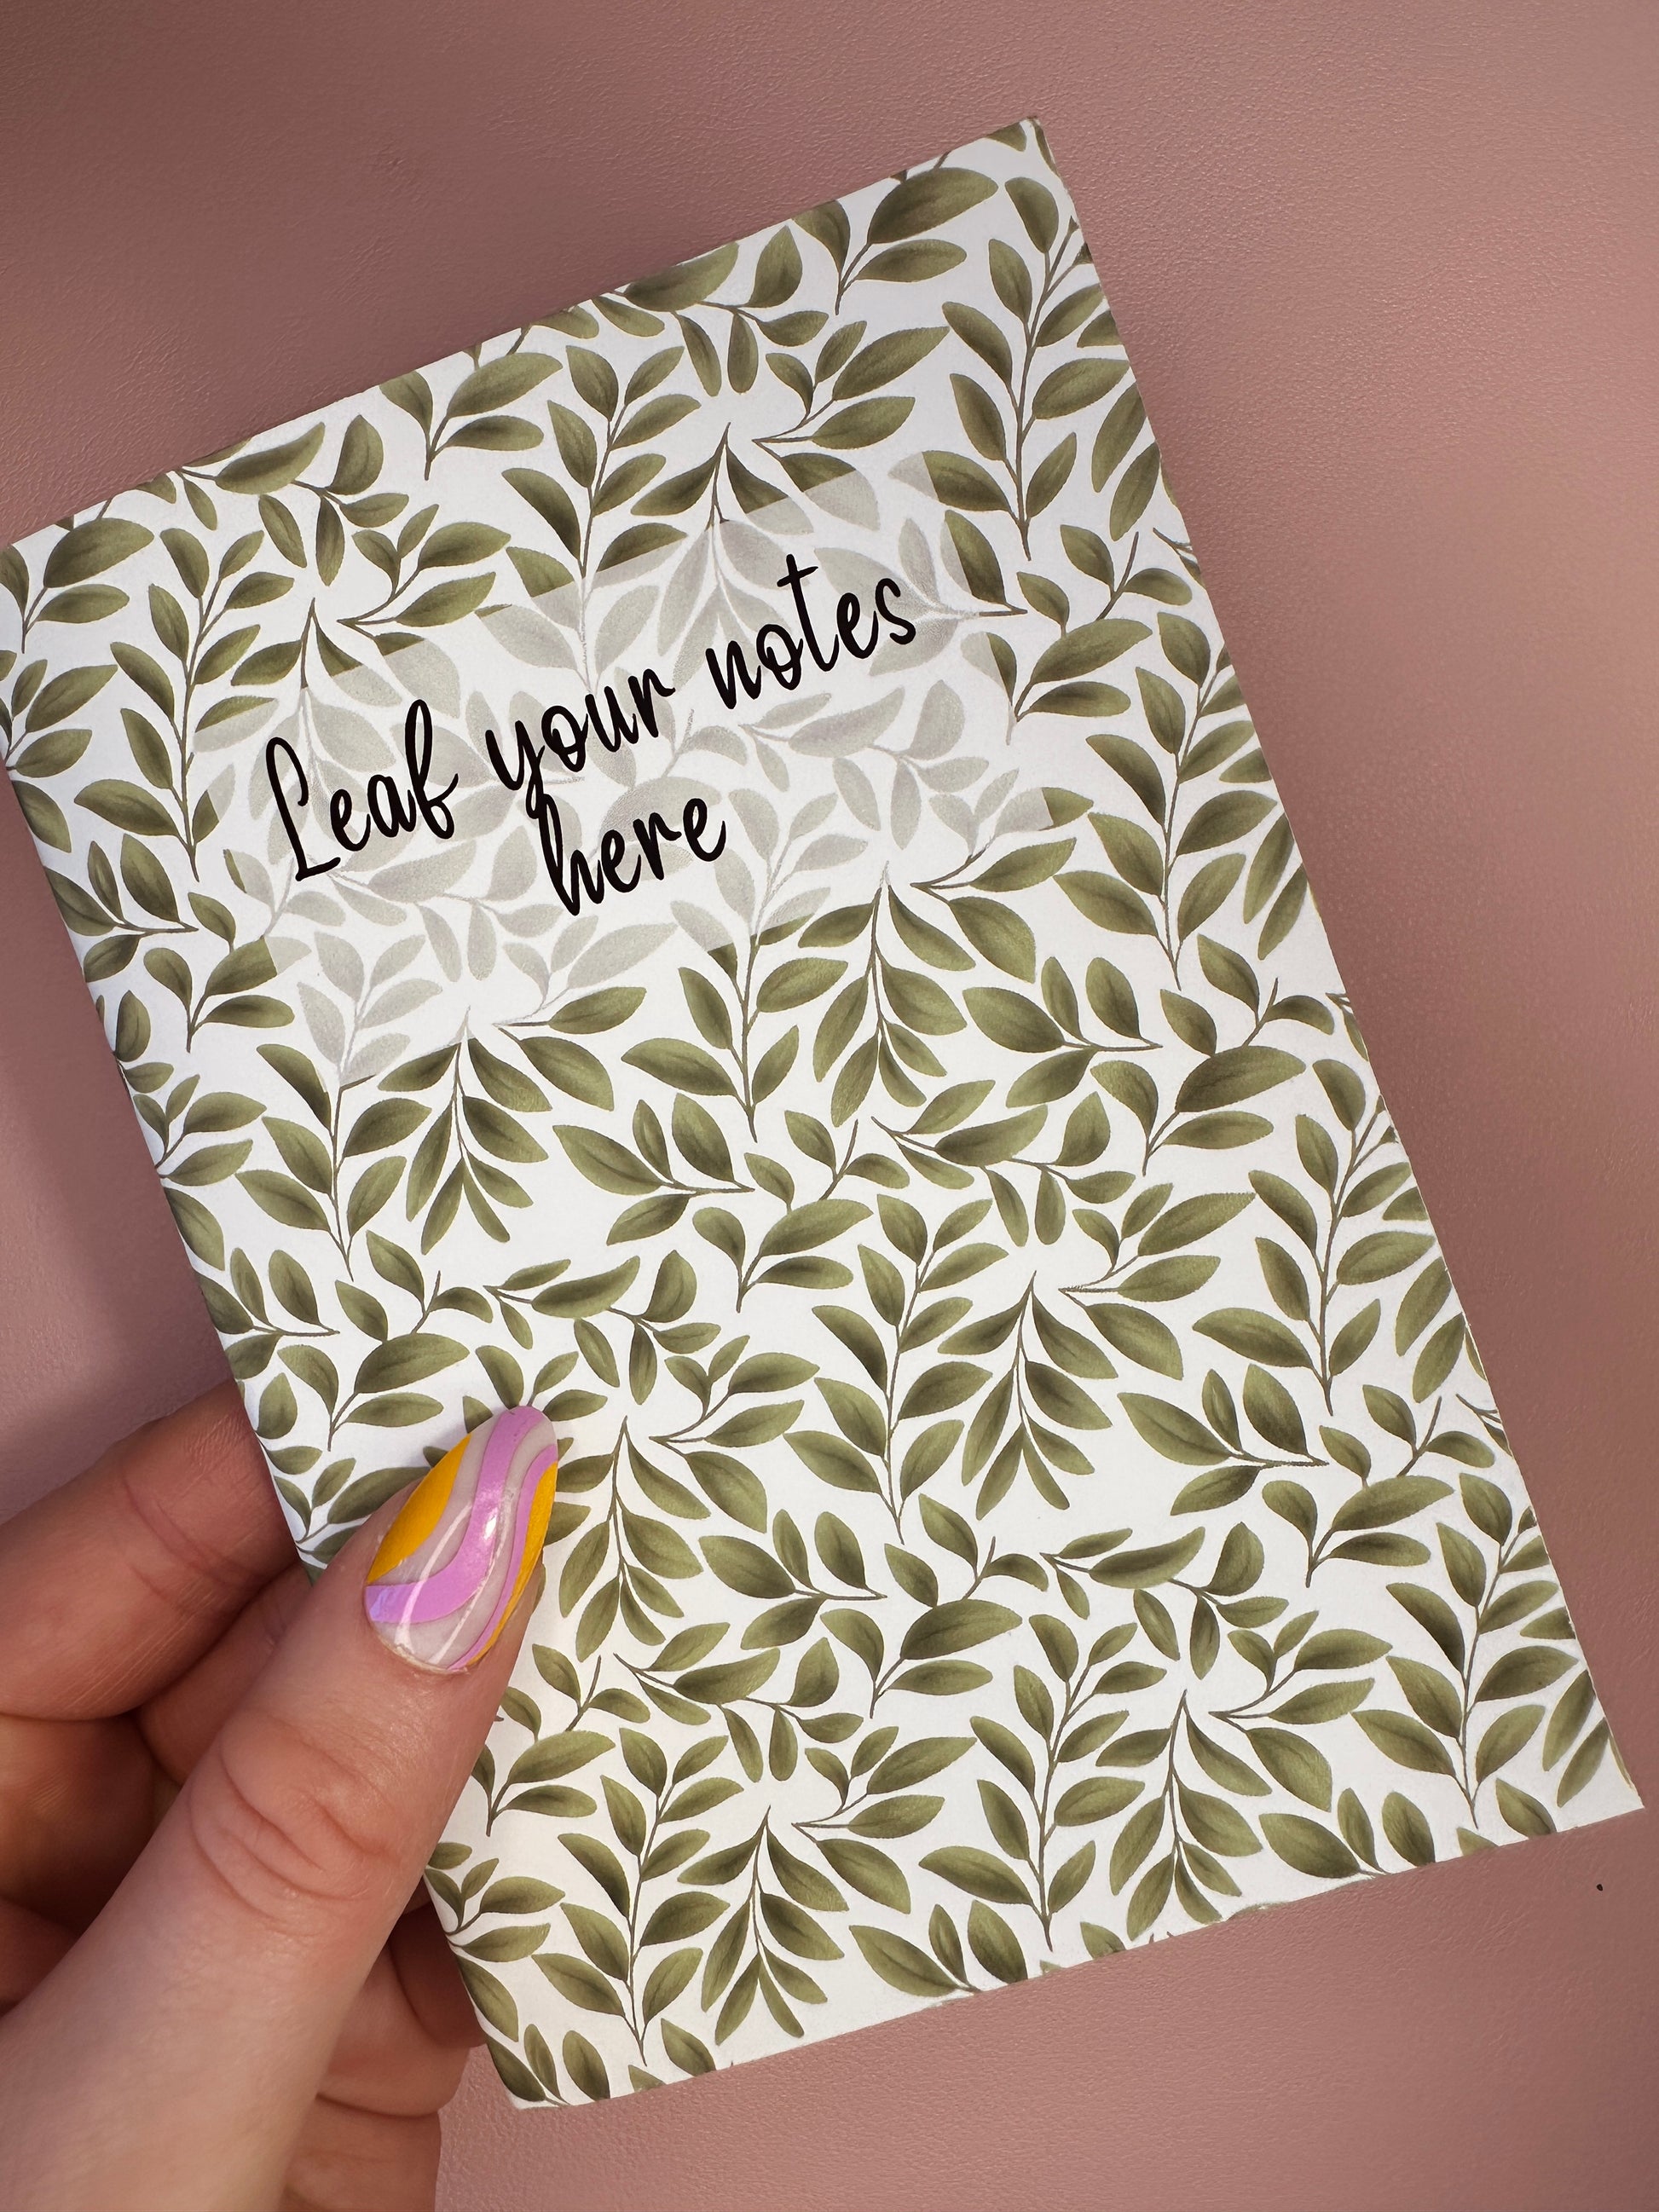 Leaf your notes
here